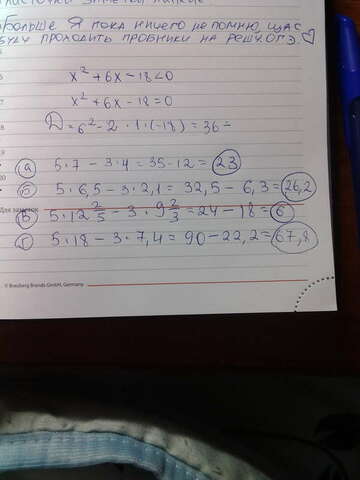 больше Я пока ничего не помню, щас
буду проходить пробники на решу огэ.
x² + 6x - 18 < 0
x² + 6x - 18 = 0
D = 6² - 2 · 1 · (-18) = 36 -
а 5·7 - 3·4 = 35 - 12 = 23
б 5·6,5 - 3·2,1 = 32,5 - 6,3 = 26,2
Для заметок
в 5·12 2/5 - 3·9 2/3 = 24 - 18 = 6
г 5·18 - 3·7,4 = 90 - 22,2 = 67,8
© Brauberg Brands GmbH, Germany